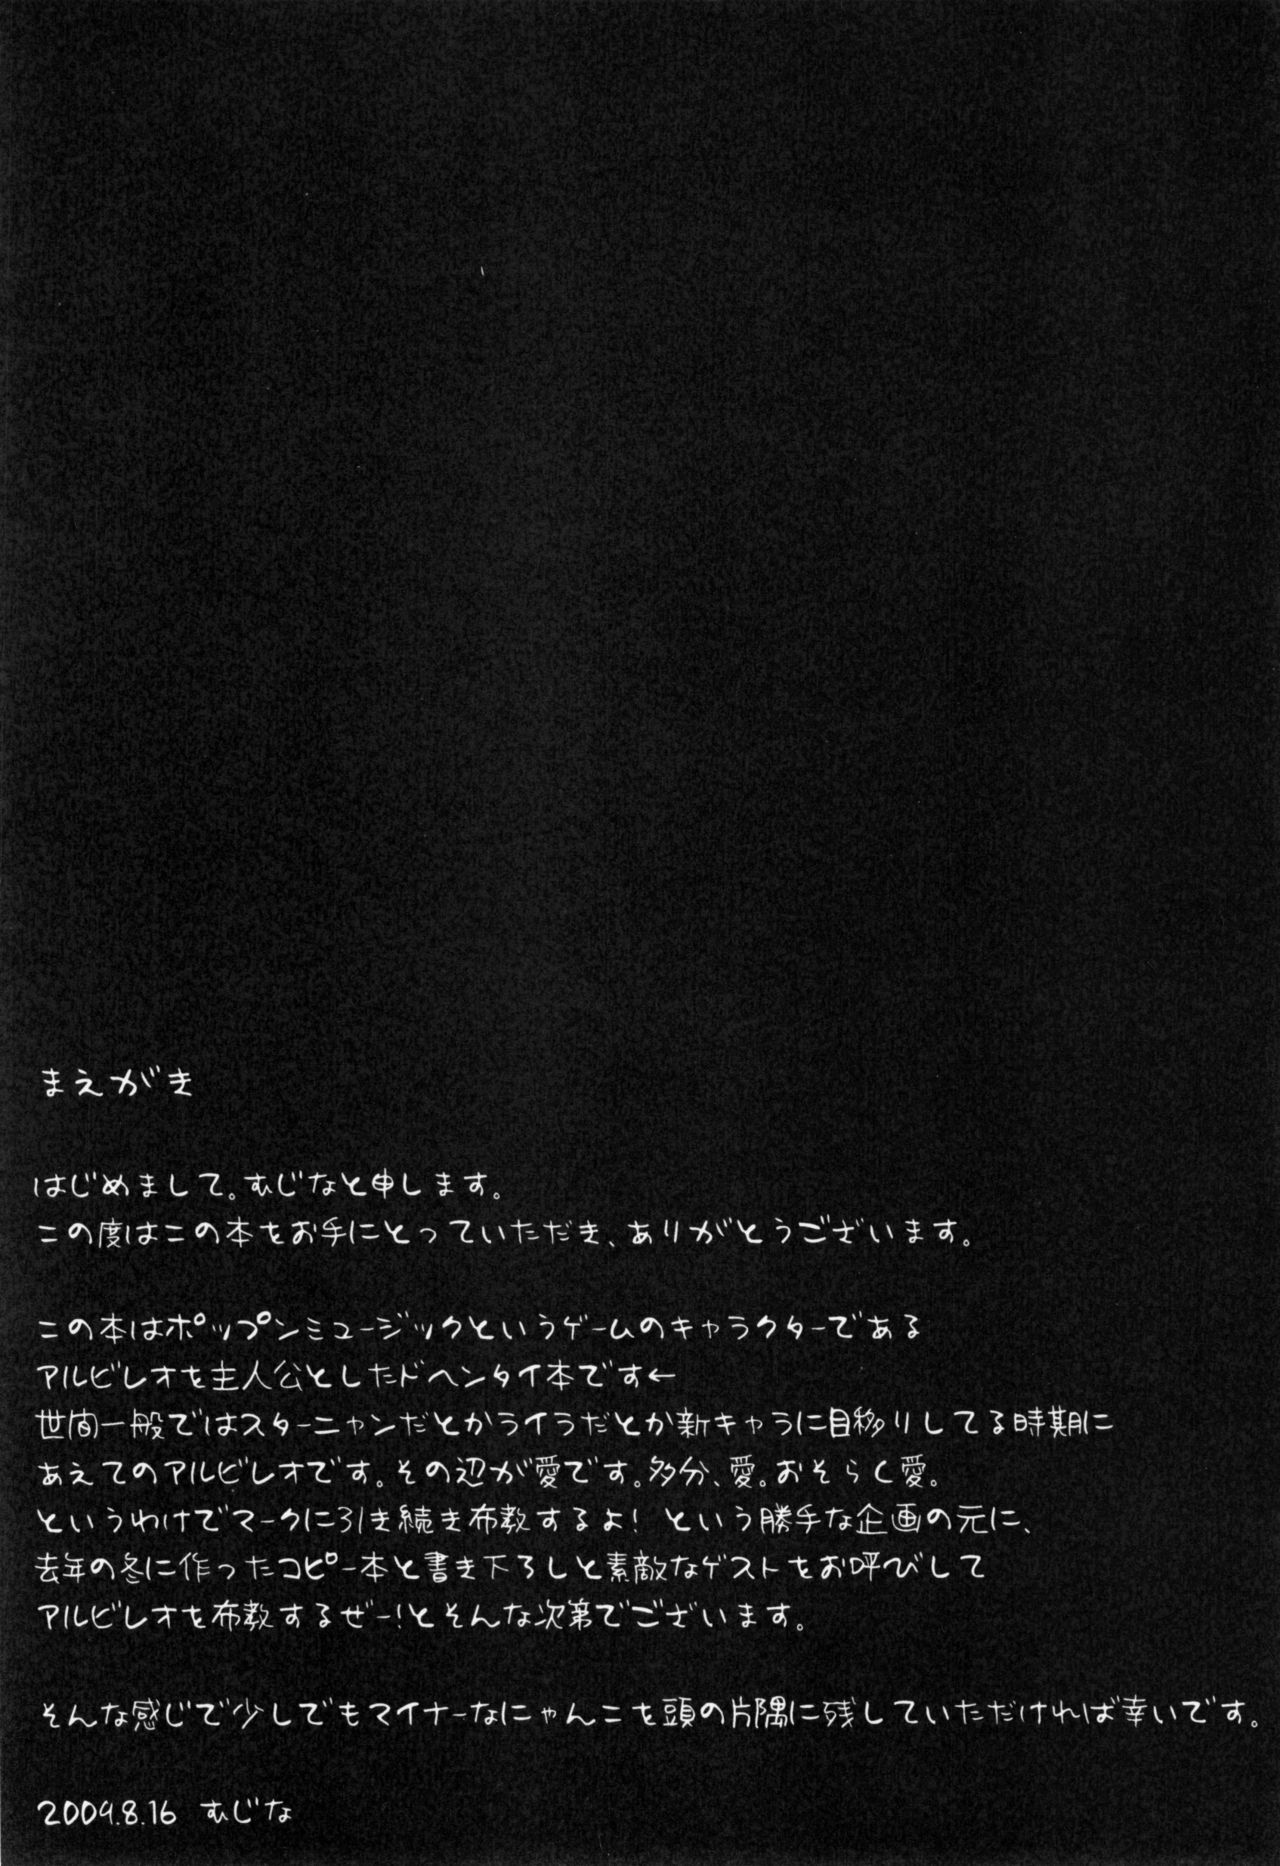 まえがき
はじめまして。むじなと申します。
この度はこの本をお手にとっていただき、ありがとうございます。
この本はポップンミュージックというゲームのキャラクターである
アルビレオを主人公としたドヘンタイ本です←
世間一般ではスターニャンだとかライラだとか新キャラに目移りしてる時期に
あえてのアルビレオです。その辺が愛です。多分、愛。おそらく愛。
というわけでマークに引き続き布教するよ！という勝手な企画の元に、
去年の冬に作ったコピー本と書き下ろしと素敵なゲストをお呼びして
アルビレオを布教するぜー！とそんな次第でございます。
そんな感じで少しでもマイナーなにゃんこを頭の片隅に残していただければ幸いです。
2009.8.16 むじな